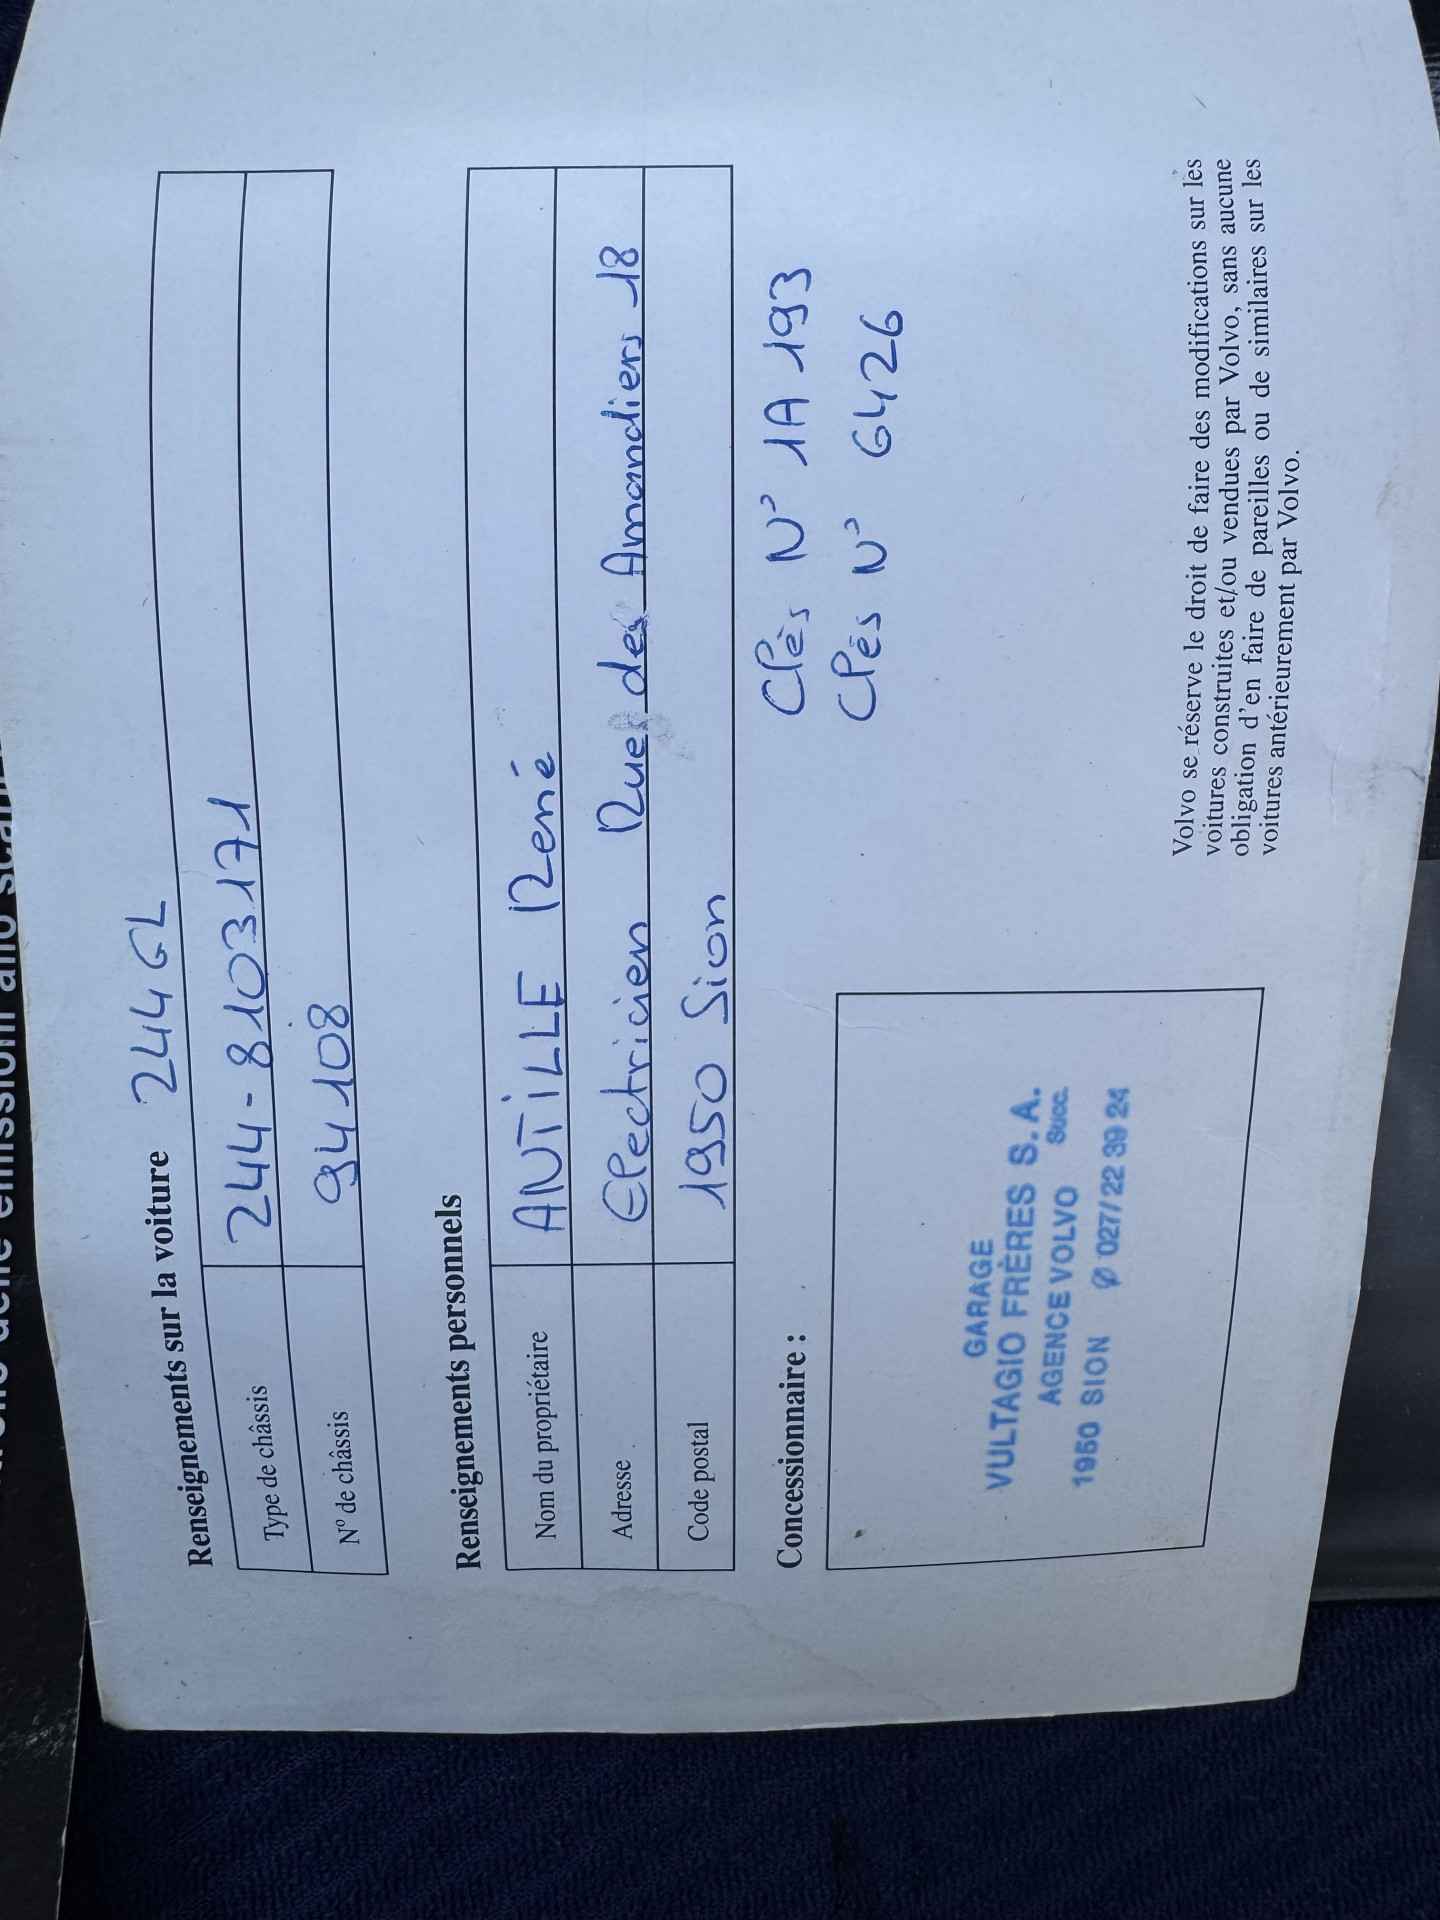 Renseignements sur la voiture 244GL
Type de châssis 244-8103171
N° de châssis 94108
Renseignements personnels
Nom du propriétaire ANTiLLE René
Adresse Electricien Rue des Amandiers 18
Code postal 1950 Sion
Clès N° 1A193
Clés N° 6426
Concessionnaire :
GARAGE
VULTAGIO FRÈRES S. A.
AGENCE VOLVO Succ.
1950 SION Ø 027/22 39 24
Volvo se réserve le droit de faire des modifications sur les
voitures construites et/ou vendues par Volvo, sans aucune
obligation d'en faire de pareilles ou de similaires sur les
voitures antérieurement par Volvo.